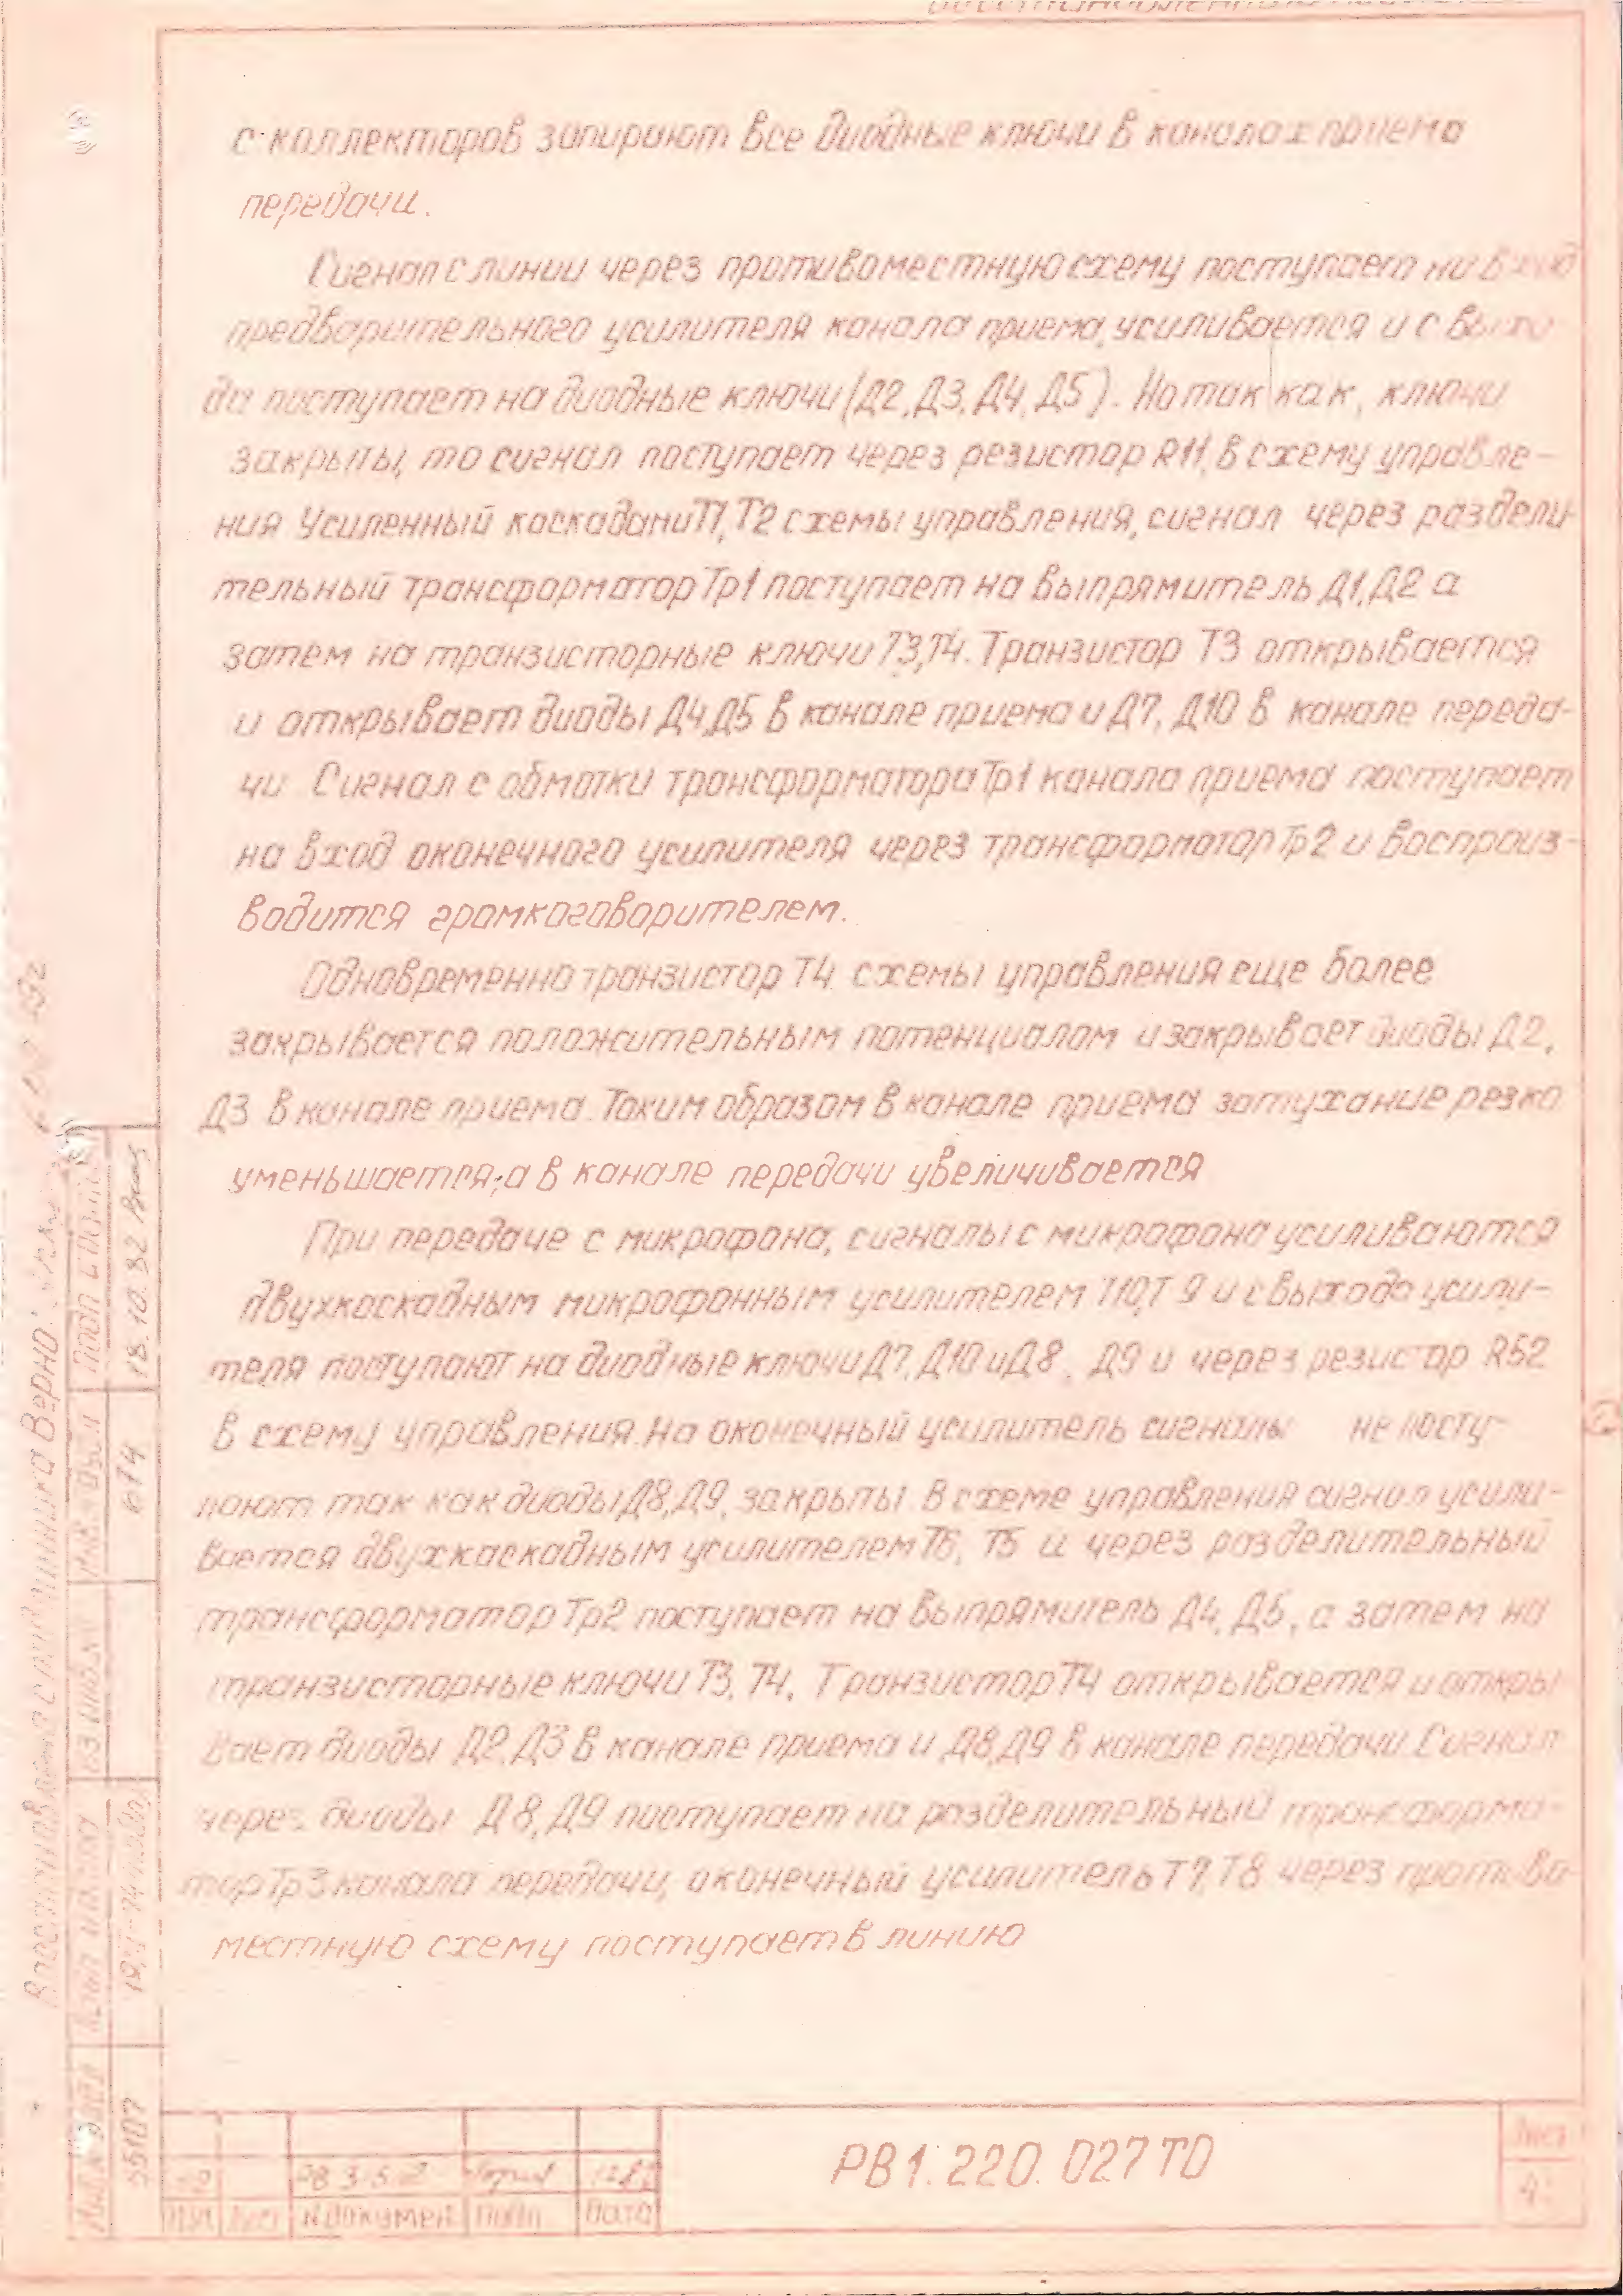 с коллекторов запирают все диодные ключи в каналах приема
передачи.
Сигнал с линии через противоместную схему поступает на вход
предварительного усилителя канала приема, усиливается и с выхо
да поступает на диодные ключи (Д2, Д3, Д4, Д5). Но так как, ключи
закрыты, то сигнал поступает через резистор R11, в схему управле-
ния Усиленный каскадами Т1, Т2 схемы управления, сигнал через раздели-
тельный трансформатор Тр1 поступает на выпрямитель Д1, Д2 а
затем на транзисторные ключи Т3, Т4. Транзистор Т3 открывается
и открывает диоды Д4, Д5 в канале приема и Д7, Д10 в канале переда-
чи. Сигнал с обмотки трансформатора Тр1 канала приема поступает
на вход оконечного усилителя через трансформатор Тр2 и воспроиз-
водится громкоговорителем.
Одновременно транзистор Т4 схемы управления еще более
закрывается положительным потенциалом и закрывает диоды Д2,
Д3 в канале приема. Таким образом в канале приема затухание резко
уменьшается, а в канале передачи увеличивается
При передаче с микрофона, сигналы с микрофона усиливаются
двухкаскадным микрофонным усилителем Т10, Т9 и с выхода усили-
теля поступают на диодные ключи Д7, Д10 и Д8, Д9 и через резистор R52
в схему управления. На оконечный усилитель сигналы не посту-
пают так как диоды Д8, Д9, закрыты. В схеме управления сигнал усили-
вается двухкаскадным усилителем Т6, Т5 и через разделительный
трансформатор Тр2 поступает на выпрямитель Д4, Д5, а затем на
транзисторные ключи Т3, Т4. Транзистор Т4 открывается и откры
вает диоды Д2, Д3 в канале приема и Д8, Д9 в канале передачи. Сигнал
через диоды Д8, Д9 поступает на разделительный трансформа-
тор Тр3 канала передачи, оконечный усилитель Т7, Т8 через противо
местную схему поступает в линию
РВ1.220.027 ТО
Лист
4
Изм Лист № докумен Подп. Дата
Восстановлена с подлинника Верно:
Подп. и дата
18.10.82
614
Взам. инв. №
Подп. и дата
55107